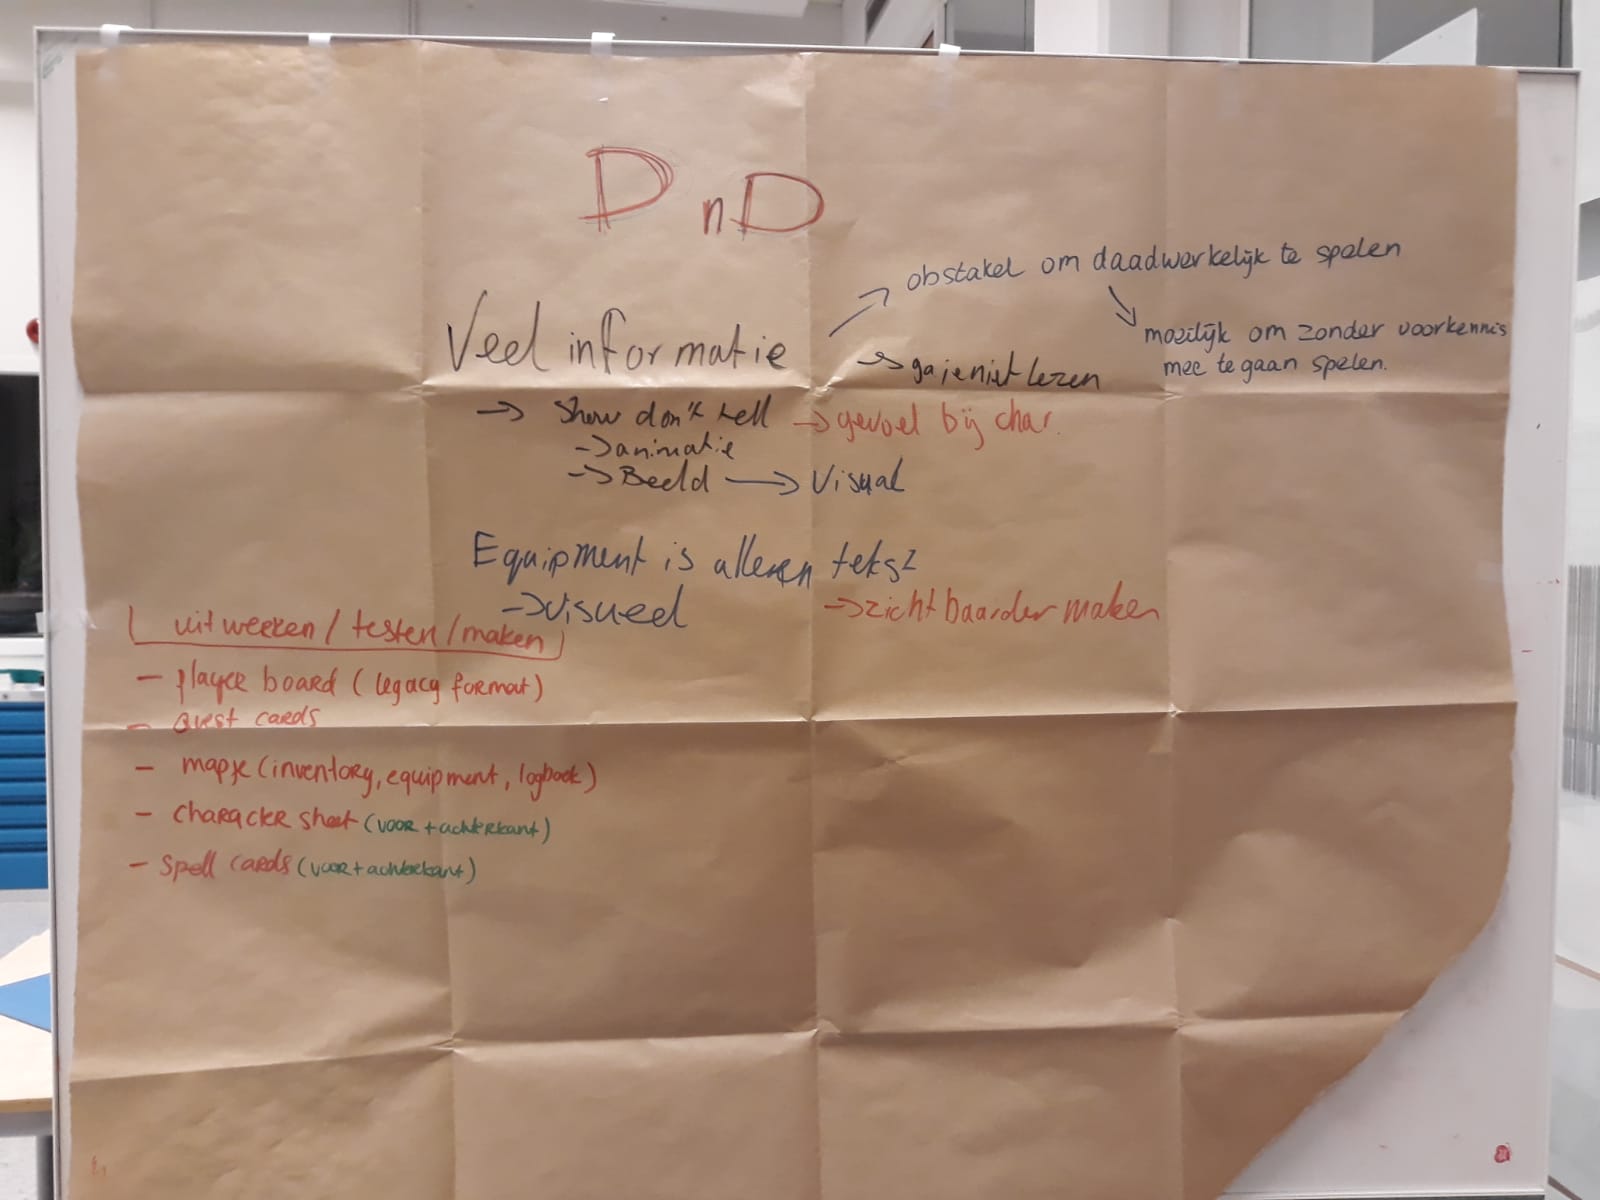 DnD
obstakel om daadwerkelijk te spelen
Veel informatie
moeilijk om zonder voorkennis
mee te gaan spelen.
→ ga je niet lezen
→ Show don't tell → gevoel bij char.
→ animatie
→ Beeld → Visual
Equipment is alleen tekst
→ visueel → zichtbaarder maken
uitwerken / testen / maken
- player board (legacy format)
- Quest cards
- mapje (inventory, equipment, logbook)
- character sheet (voor + achterkant)
- spell cards (voor + achterkant)